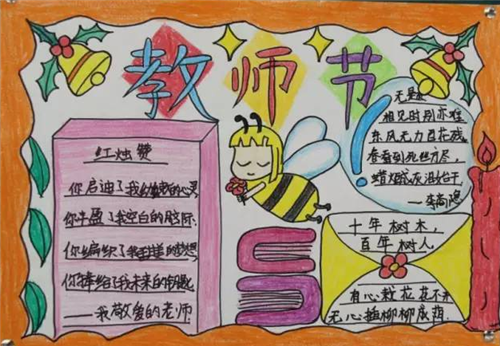 教师节
红烛赞
你启迪了我幼嫩的心灵
你丰盈了我空白的脑际
你编织了我的梦想
你捧给了我未来的
——我敬爱的老师
无题
相见时别亦难
东风无力百花残,
春蚕到死丝方尽,
蜡烛成灰泪始干
——李商隐
十年树木,
百年树人
有心栽花花不开
无心插柳柳成荫.